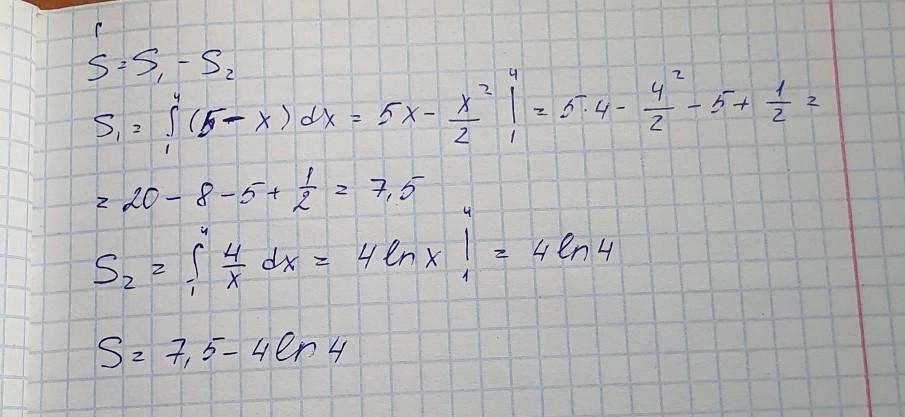 S = S₁ - S₂
S₁ = ∫₁⁴ (5 - x) dx = 5x - x²/2 |₁⁴ = 5·4 - 4²/2 - 5 + 1/2 =
= 20 - 8 - 5 + 1/2 = 7,5
S₂ = ∫₁⁴ 4/x dx = 4 ln x |₁⁴ = 4 ln 4
S = 7,5 - 4 ln 4